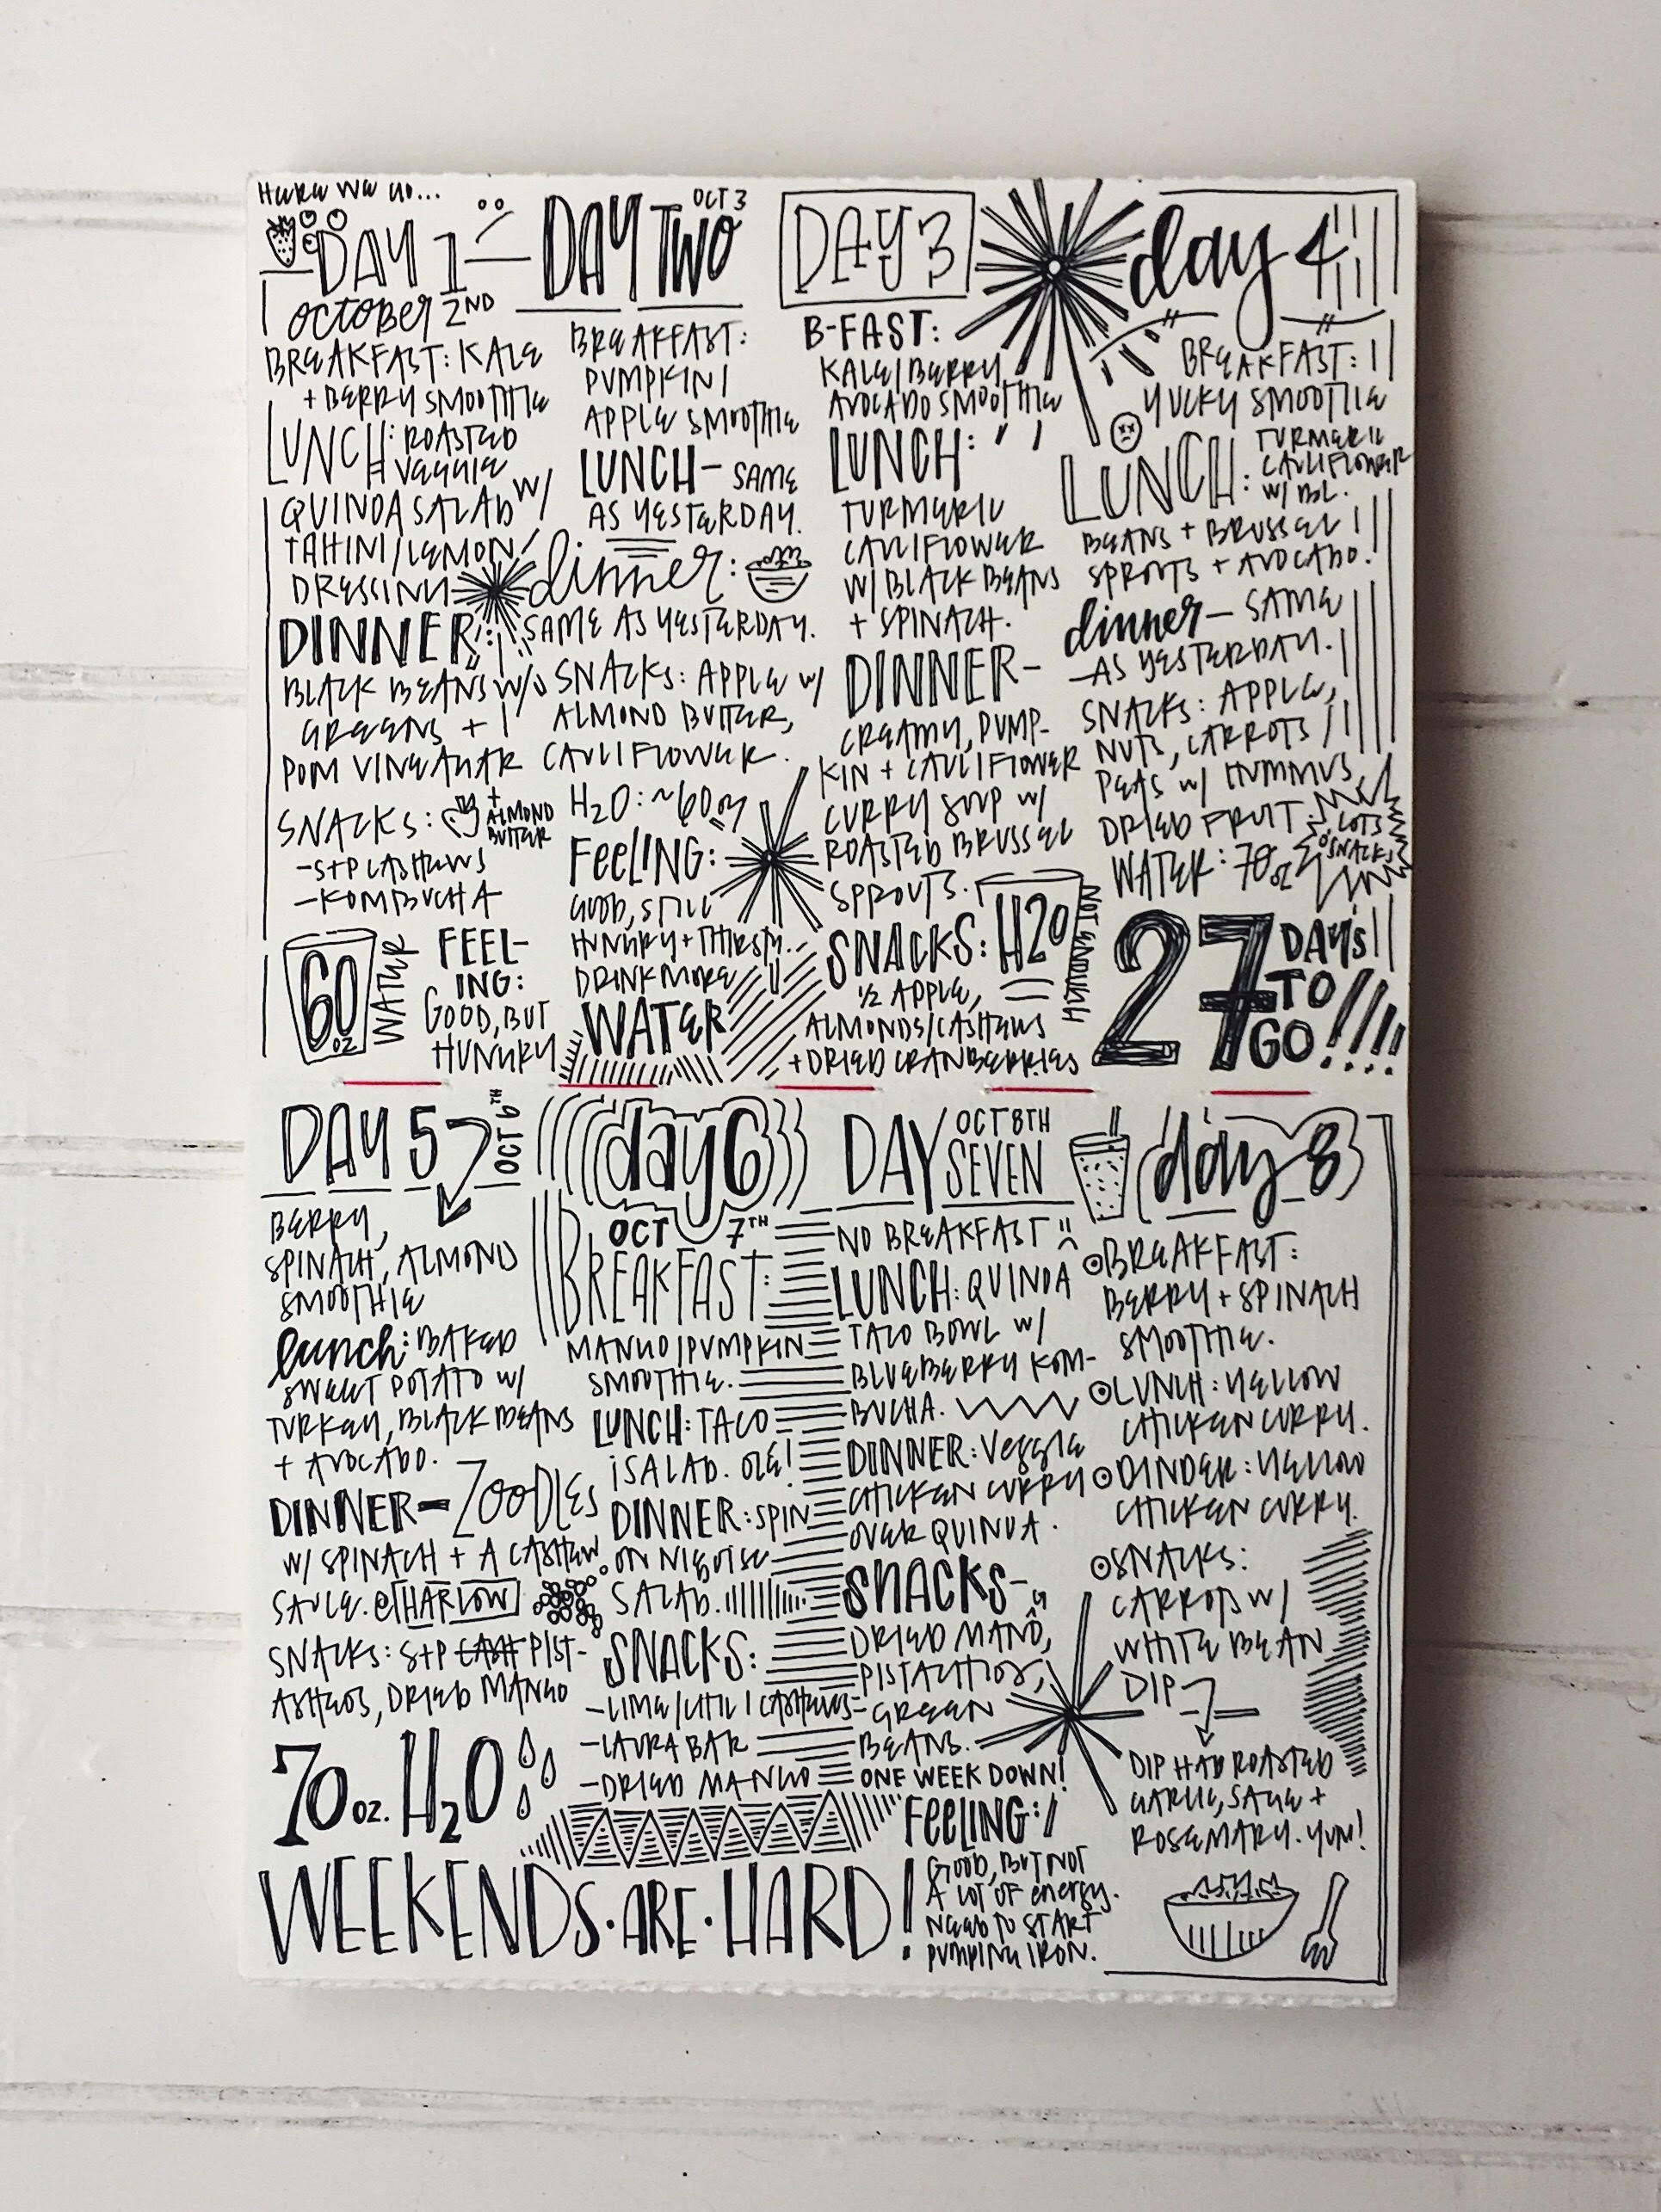 HERE WE GO...
DAY 1
OCTOBER 2ND
BREAKFAST: KALE
+ BERRY SMOOTHIE
LUNCH: ROASTED
VEGGIE
QUINOA SALAD W/
TAHINI/LEMON
DRESSING
DINNER:
BLACK BEANS W/
GREENS +
POM VINEAGAR
SNACKS: + ALMOND
BUTTER
-S+P CASHEWS
-KOMBUCHA
60 OZ
WATER
FEEL-
ING:
GOOD, BUT
HUNGRY
DAY TWO
OCT 3
BREAKFAST:
PUMPKIN/
APPLE SMOOTHIE
LUNCH- SAME
AS YESTERDAY.
dinner:
SAME AS YESTERDAY.
SNACKS: APPLE W/
ALMOND BUTTER,
CAULIFLOWER.
H2O: ~60 OZ
FEELING:
GOOD, STILL
HUNGRY + THIRSTY..
DRINK MORE
WATER
DAY 3
B-FAST:
KALE/BERRY
AVOCADO SMOOTHIE
LUNCH:
TURMERIC
CAULIFLOWER
W/ BLACK BEANS
+ SPINACH.
DINNER-
CREAMY, PUMP-
KIN + CAULIFLOWER
CURRY SOUP W/
ROASTED BRUSSEL
SPROUTS.
SNACKS:
1/2 APPLE,
ALMONDS/CASHEWS
+ DRIED CRANBERRIES
H2O
NOT ENOUGH
day 4
BREAKFAST:
YUCKY SMOOTHIE
LUNCH: TURMERIC
CAULIFLOWER
W/ BL.
BEANS + BRUSSEL
SPROUTS + AVOCADO.
dinner- SAME
AS YESTERDAY.
SNACKS: APPLE,
NUTS, CARROTS/
PEAS W/ HUMMUS,
DRIED FRUIT.
LOTS
O' SNACKS
WATER: 70 OZ
27 DAYS
TO
GO!!!!
DAY 5
OCT 6TH
BERRY,
SPINACH, ALMOND
SMOOTHIE
lunch: BAKED
SWEET POTATO W/
TURKEY, BLACK BEANS
+ AVOCADO.
DINNER- ZOODLES
W/ SPINACH + A CASHEW
SAUCE. @ HARLOW
SNACKS: S+P CASH PIST-
ASHEOS, DRIED MANGO
70 OZ. H2O
day 6
OCT 7TH
BREAKFAST:
MANGO/PUMPKIN
SMOOTHIE.
LUNCH: TACO
¡SALAD. OLE!
DINNER: SPIN
ON NIGOISE
SALAD.
SNACKS:
-LIME/CHILI CASHEWS
-LAURA BAR
-DRIED MANGO
DAY SEVEN
OCT 8TH
NO BREAKFAST
LUNCH: QUINOA
TACO BOWL W/
BLUEBERRY KOM-
BUCHA.
DINNER: VEGGIE
CHICKEN CURRY
OVER QUINOA.
SNACKS-
DRIED MANGO,
PISTACHIOS,
GREEN
BEANS.
ONE WEEK DOWN!
FEELING:
GOOD, BUT NOT
A LOT OF ENERGY.
NEED TO START
PUMPING IRON.
day 8
BREAKFAST:
BERRY + SPINACH
SMOOTHIE.
LUNCH: YELLOW
CHICKEN CURRY.
DINDER: YELLOW
CHICKEN CURRY.
SNACKS:
CARROTS W/
WHITE BEAN
DIP
DIP HAD ROASTED
GARLIC, SAGE +
ROSEMARY. YUM!
WEEKENDS·ARE·HARD!